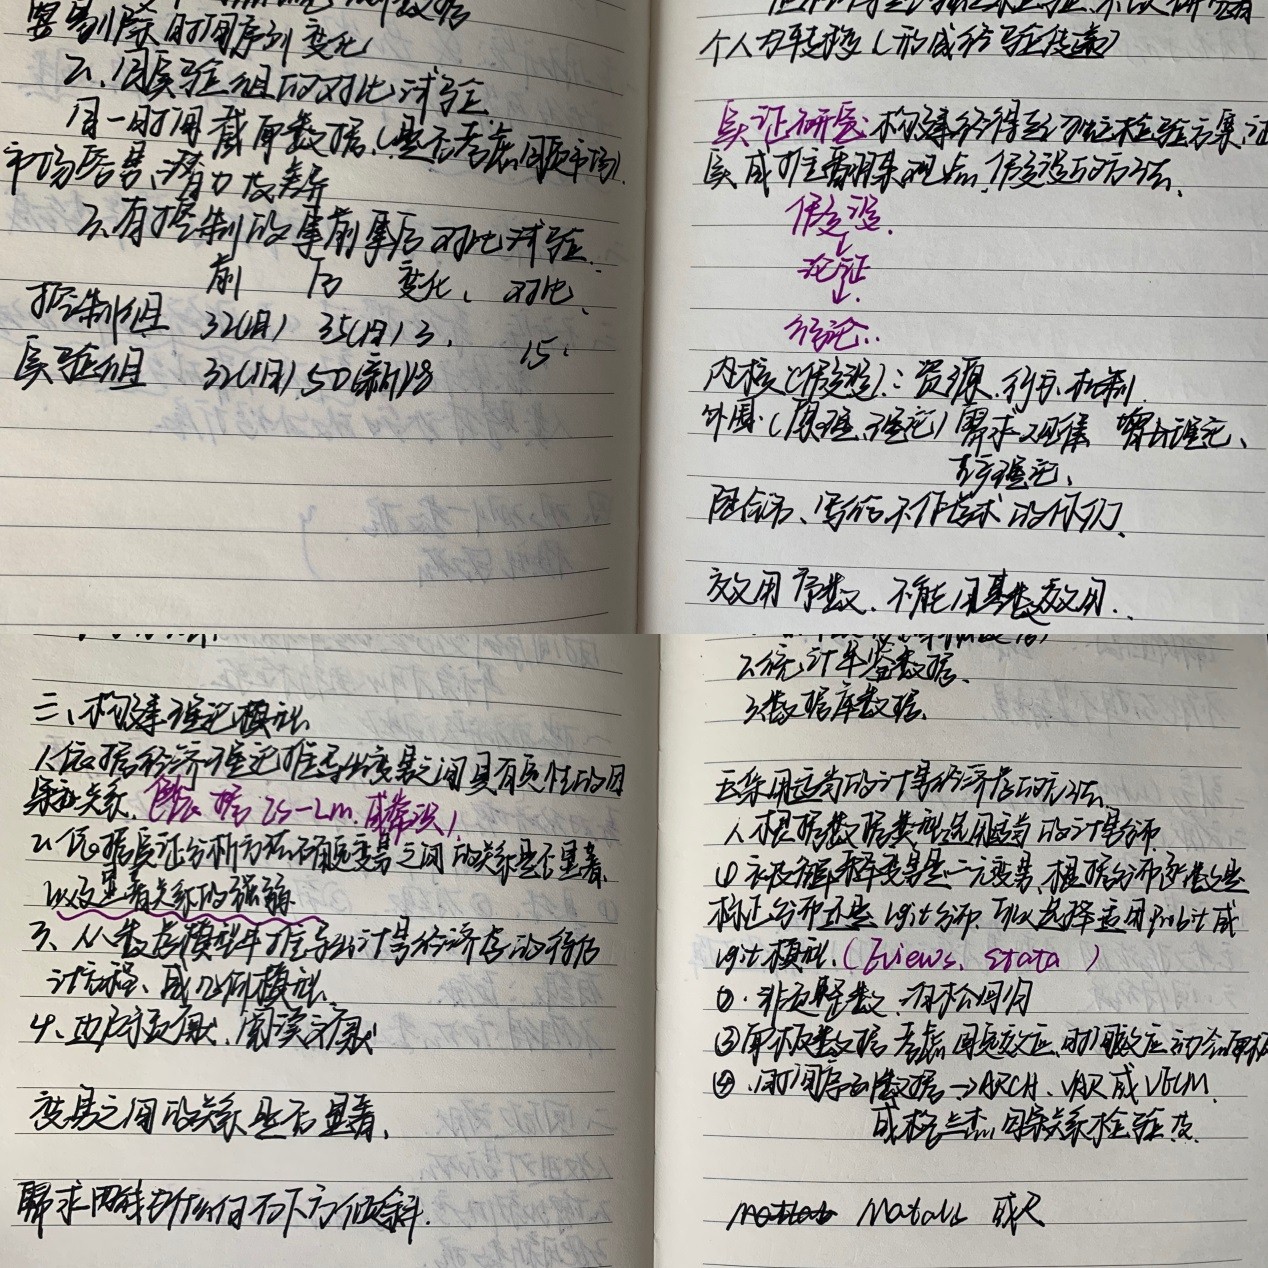 要剔除时间序列变化
2、同实验组的对比试验
同一时间截面数据、(是否考虑同质市场)
市场容量、潜力及差异
3、有控制的事前事后对比试验
前 后 变化、对比、
控制组 32(旧) 35(旧) 3、
实验组 32(旧) 50(新) 18 15、
个人为转移(形成经验性结论)
实证研究:构建经得到检验方案,证
实或推翻某观点、假设的方法、
假设、
↓
论证
↓
结论、
内核(假设):资源、行为、机制
外围:(原理、理论)需求、理论、
理论、
陆铭、写给不作学术的你们、
效用序数、不能用基数效用、
三、构建理论模型
1、依据经济理论推导出变量之间具有定性的因
果关系、(依据IS-LM、或假设)
2、依据实证分析方法确定变量之间的关系是否显著、
以及显著关系的强弱
3、从数学模型中推导出计量经济学的待估
计方程、或几何模型、
4、边际贡献、阅读文献
变量之间的关系是否显著、
需求曲线为什么向右下方倾斜、
2、统计年鉴数据、
3、数据库数据、
五、采用适当的计量经济学的方法、
1、根据数据类型选用适当的计量分析
①被解释变量是二元变量、根据分布函数是
标正分布还是logit分布、可以选择运用Probit或
logit模型、(Eviews、Stata)
②、非负整数、泊松回归
③面板数据考虑固定效应、时间效应动态面板
④、时间序列数据→ARCH、VAR或VECM、
或格兰杰因果关系检验法、
Matlab 或R